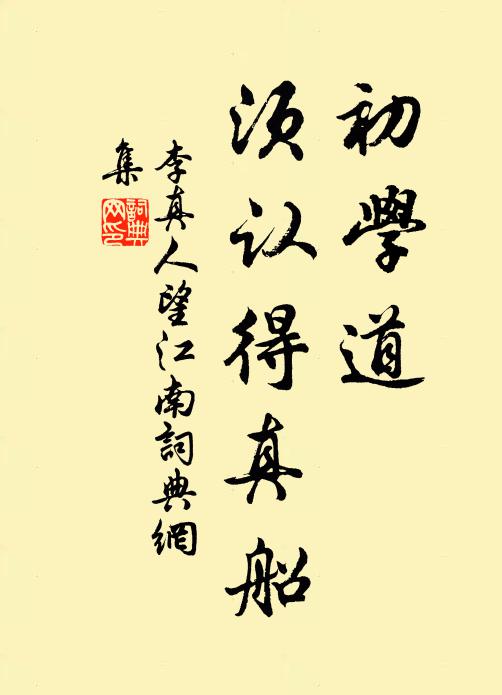 初學道
須认得真船
李真人望江南詞典網
集
詞典網印